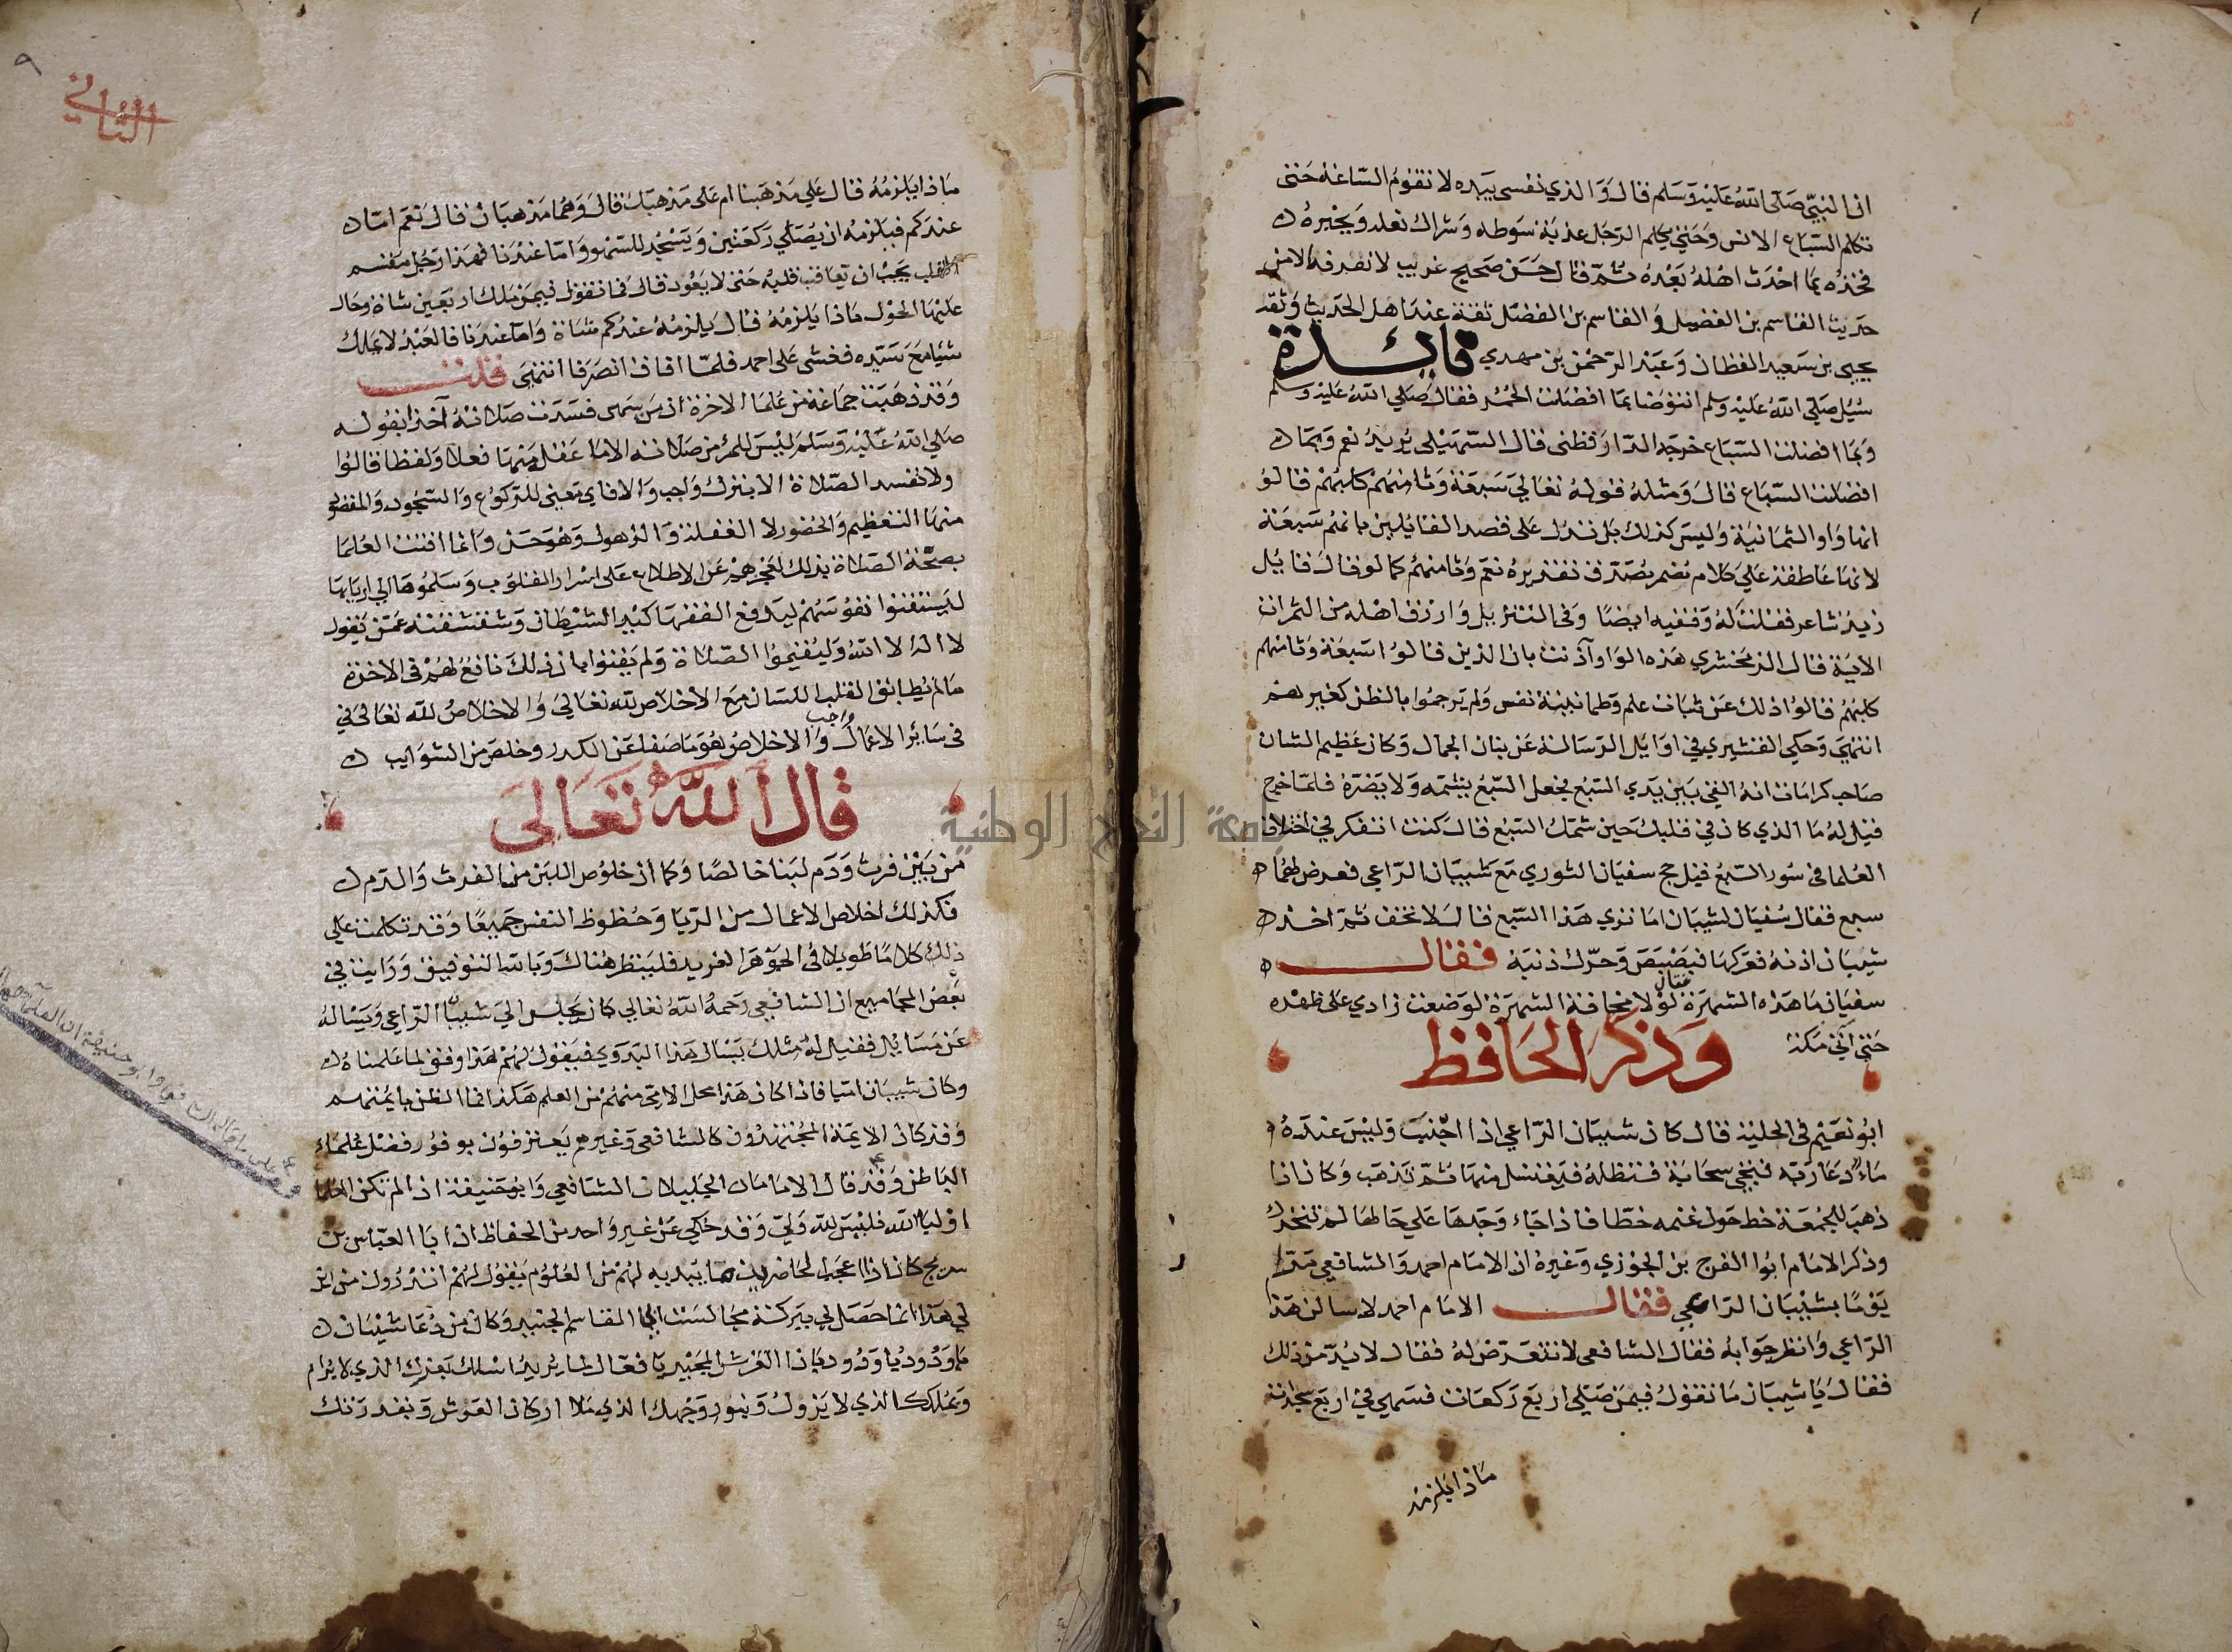 ان النبي صلى الله عليه وسلم قال والذي نفسي بيده لا تقوم الساعة حتى
تكلم السباع الانس وحتى يكلم الرجل عذبة سوطه وشراك نعله ويخبره
فخذه بما احدث اهله بعده ثم قال حسن صحيح غريب لا نعرفه الا من
حديث القاسم بن الفضيل والقاسم بن الفضل ثقة عند اهل الحديث وثقه
يحيى بن سعيد القطان وعبد الرحمن بن مهدي فايدة
سئل صلى الله عليه وسلم انتوضا بما افضلت الحمر فقال صلى الله عليه وسلم
وبما افضلت السباع خرجه الدارقطني قال السهيلي يريد نعم وبما
افضلت السباع قال ومثله قوله تعالى سبعة وثامنهم كلبهم قالوا
انها واو الثمانية وليس كذلك بل تدل على قصد القائلين بانهم سبعة
لانها عاطفة على كلام مضمر يصدق تقديره نعم وثامنهم كما لو قال قايل
زيد شاعر فقلت له وفقيه ايضا وفي التنزيل وارزق اهله من الثمرات
الاية قال الزمخشري هذه الواو آذنت بان الذين قالوا سبعة وثامنهم
كلبهم قالوا ذلك عن ثبات علم وطمانينة نفس ولم يرجموا بالظن كغيرهم
انتهى وحكي القشيري في اوايل الرسالة عن بنان الجمال وكان عظيم الشان
صاحب كرامات انه القي بين يدي السبع فجعل السبع يشمه ولا يضره فلما خرج
قيل له ما الذي كان في قلبك حين شمك السبع قال كنت اتفكر في اختلاف
العلما في سور السبع قيل حج سفيان الثوري مع شيبان الراعي فعرض لهما
سبع فقال سفيان لشيبان اما تري هذا السبع قال لا تخف ثم اخذ
شيبان اذنه فعركها فبصبص وحرك ذنبه فقال
سفيان ما هذه الشهرة فقال لولا مخافة الشهرة لوضعت زادي على ظهره
حتى آتي مكة وذكر الحافظ
ابو نعيم في الحلية قال كان شيبان الراعي اذا اجنب وليس عنده
ماء دعا ربه فتجي سحابة فتظله فيغتسل منها ثم تذهب وكان اذا
ذهب للجمعة خط حول غنمه خطا فاذا جاء وجدها على حالها لم تتحرك
وذكر الامام ابوا الفرج بن الجوزي وغيره ان الامام احمد والشافعي مرا
يوما بشيبان الراعي فقال الامام احمد لاسالن هذا
الراعي وانظر جوابه فقال الشافعي لا تتعرض له فقال لا بد من ذلك
فقال يا شيبان ما تقول فيمن صلى اربع ركعات فسهي في اربع سجدات
ماذا يلزمه
الثاني
ماذا يلزمه قال علي مذهبنا ام على مذهبك قال وهما مذهبان قال نعم اما
عندكم فيلزمه ان يصلي ركعتين ويسجد للسهو واما عندنا فهذا رجل مقسم
القلب يجب ان يعاقب قلبه حتى لا يعود قال فما تقول فيمن ملك اربعين شاة وحال
عليها الحول ماذا يلزمه قال يلزمه عندكم شاة واما عندنا فالعبد لا يملك
شيا مع سيده فغشي على احمد فلما افاق انصرفا انتهى قلت
وقد ذهبت جماعة من علما الاخرة ان من سهى فسدت صلاته آخذا بقوله
صلى الله عليه وسلم ليس للمرء من صلاته الا ما عقل منها فعلا ولفظا قالوا
ولا تفسد الصلاة الا بترك واجب والا فاي معني للركوع والسجود والمقصود
منها التعظيم والحضور لا الغفلة والذهول وهو حق وانما افتت العلما
بصحة الصلاة بذلك لعجزهم عن الاطلاع على اسرار القلوب وسلموها الي اربابها
ليستفتوا نفوسهم ليدفع الفقها كيد الشيطان وشقشقته عمن يقول
لا اله الا الله وليقيموا الصلاة ولم يفتوا بان ذلك نافع لهم في الاخرة
ما لم يطابق القلب اللسان مع الاخلاص لله تعالى والاخلاص لله تعالى في
في سائر الاعمال واجب والاخلاص هو ما صفا عن الكدر وخلص من الشوايب
قال الله تعالى
من بين فرث ودم لبنا خالصا وكما ان خلوص اللبن من الفرث والدم
فكذلك اخلاص الاعمال من الريا وحظوظ النفس جميعا وقد تكلمت علي
ذلك كلاما طويلا في الجوهر الفريد فلينظر هناك وبالله التوفيق ورايت في
بعض المجاميع ان الشافعي رحمه الله تعالى كان يجلس الي شيبان الراعي ويساله
عن مسايل فقيل له مثلك يسال هذا البدوي فيقول لهم هذا وفق لما علمناه
وكان شيبان اميا فاذا كان هذا محل الامي منهم من العلم هكذا فما الظن بايمتهم
وقد كان الايمة المجتهدون كالشافعي وغيرهم يعترفون بوفور فضل علماء
الباطن وقد قال الامامان الجليلان الشافعي وابو حنيفة اذا لم تكن العلما
اوليا الله فليس لله ولي وقد حكي عن غير واحد من الحفاظ ان ابا العباس بن
سريج كان اذا اعجب الحاضرين ما يبديه لهم من العلوم يقول لهم اتدرون من اين
لي هذا انما حصل لي ببركة مجالستي ابا القاسم الجنيد وكان من دعا شيبان
يا ودود يا ودود يا ذا العرش المجيد يا فعال لما يريد اسلك بعزك الذي لا يرام
وبملكك الذي لا يزول وبنور وجهك الذي ملا اركان العرش وبقدرتك
جامعة النجاح الوطنية